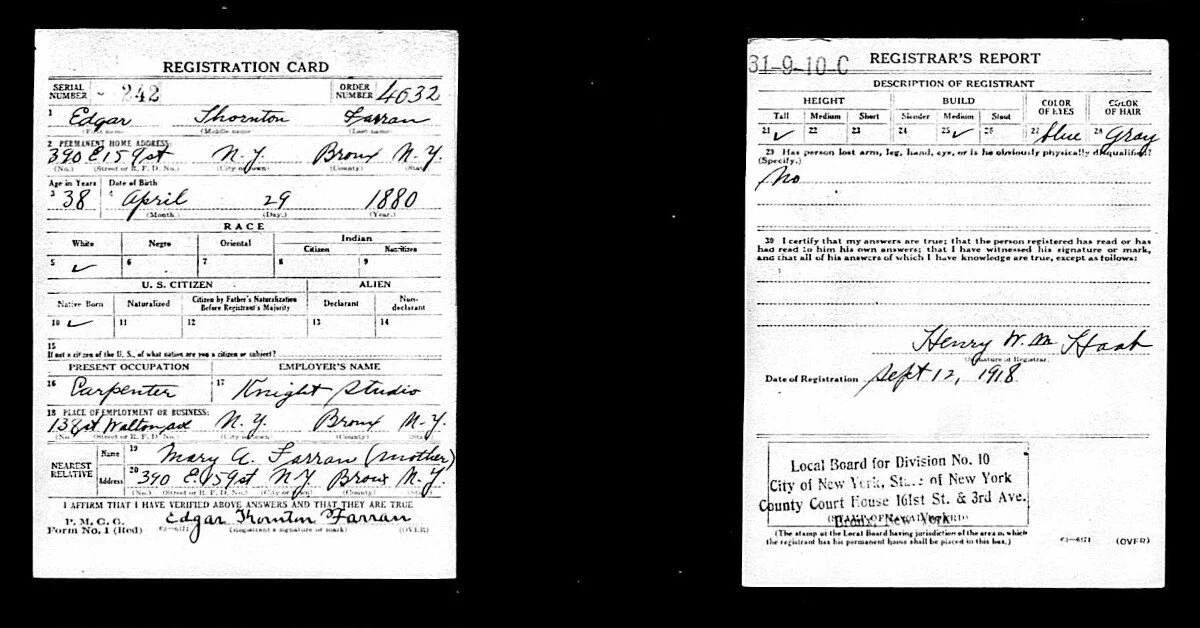 REGISTRATION CARD
SERIAL NUMBER 242 ORDER NUMBER 4632
1 Edgar Thornton Farran
(First name) (Middle name) (Last name)
2 PERMANENT HOME ADDRESS:
390 E 159 st N.Y. Bronx N.Y.
(No.) (Street or R. F. D. No.) (City or town) (County) (State)
Age in Years Date of Birth
3 38 4 April 29 1880
(Month.) (Day.) (Year.)
RACE
White Negro Oriental Indian
Citizen Noncitizen
5 ✓ 6 7 8 9
U. S. CITIZEN ALIEN
Native Born Naturalized Citizen by Father's Naturalization Before Registrant's Majority Declarant Non-declarant
10 ✓ 11 12 13 14
15
If not a citizen of the U. S., of what nation are you a citizen or subject?
PRESENT OCCUPATION EMPLOYER'S NAME
16 Carpenter 17 Knight Studio
18 PLACE OF EMPLOYMENT OR BUSINESS:
138 st Walton N.Y. Bronx N.Y.
(No.) (Street or R. F. D. No.) (City or town) (County) (State)
NEAREST RELATIVE Name 19 Mary A. Farran (mother)
Address 20 390 E. 159 st N.Y. Bronx N.Y.
(No.) (Street or R. F. D. No.) (City or town) (County) (State)
I AFFIRM THAT I HAVE VERIFIED ABOVE ANSWERS AND THAT THEY ARE TRUE
P. M. G. O.
Form No. 1 (Red) Edgar Thornton Farran
(Registrant's signature or mark) (OVER)
31-9-10-C REGISTRAR'S REPORT
DESCRIPTION OF REGISTRANT
HEIGHT BUILD COLOR OF EYES COLOR OF HAIR
Tall Medium Short Slender Medium Stout
21 ✓ 22 23 24 25 ✓ 26 27 blue 28 Gray
29 Has person lost arm, leg, hand, eye, or is he obviously physically disqualified?
(Specify.)
No
30 I certify that my answers are true; that the person registered has read or has
had read to him his own answers; that I have witnessed his signature or mark,
and that all of his answers of which I have knowledge are true, except as follows:
Henry W. M. Haab
(Signature of Registrar)
Date of Registration Sept 12, 1918
Local Board for Division No. 10
City of New York, State of New York
County Court House 161st St. & 3rd Ave.
Bronx, New York
(STAMP OF LOCAL BOARD)
(The stamp of the Local Board having jurisdiction of the area in which
the registrant has his permanent home shall be placed in this box.)
03—6171 (OVER)